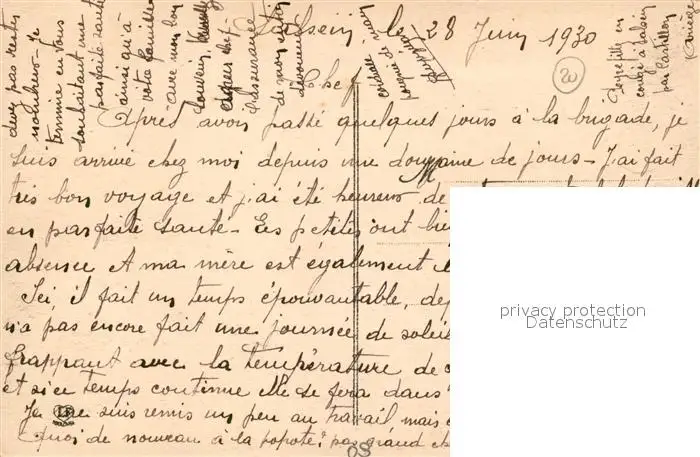 le 28 Juin 1930
20
Chef
Après avoir passé quelques jours à la brigade, je
suis arrivé chez moi depuis une douzaine de jours - J'ai fait
très bon voyage et j'ai été heureux de
en parfaite santé - Les petites ont
absence et ma mère est également
Ici, il fait un temps épouvantable,
n'a pas encore fait une journée de soleil
frappant avec la température de
et si ce temps continue elle se fera dans
Je me suis remis un peu au travail, mais
Quoi de nouveau à la popote? pas grand
termine en vous
souhaitant une
parfaite santé
ainsi qu'à
votre famille
avec mon bon
souvenir
l'assurance
de mon
dévouée
cordiale
poignée de main
en
congé à
par Castillon
Ariège
privacy protection
Datenschutz